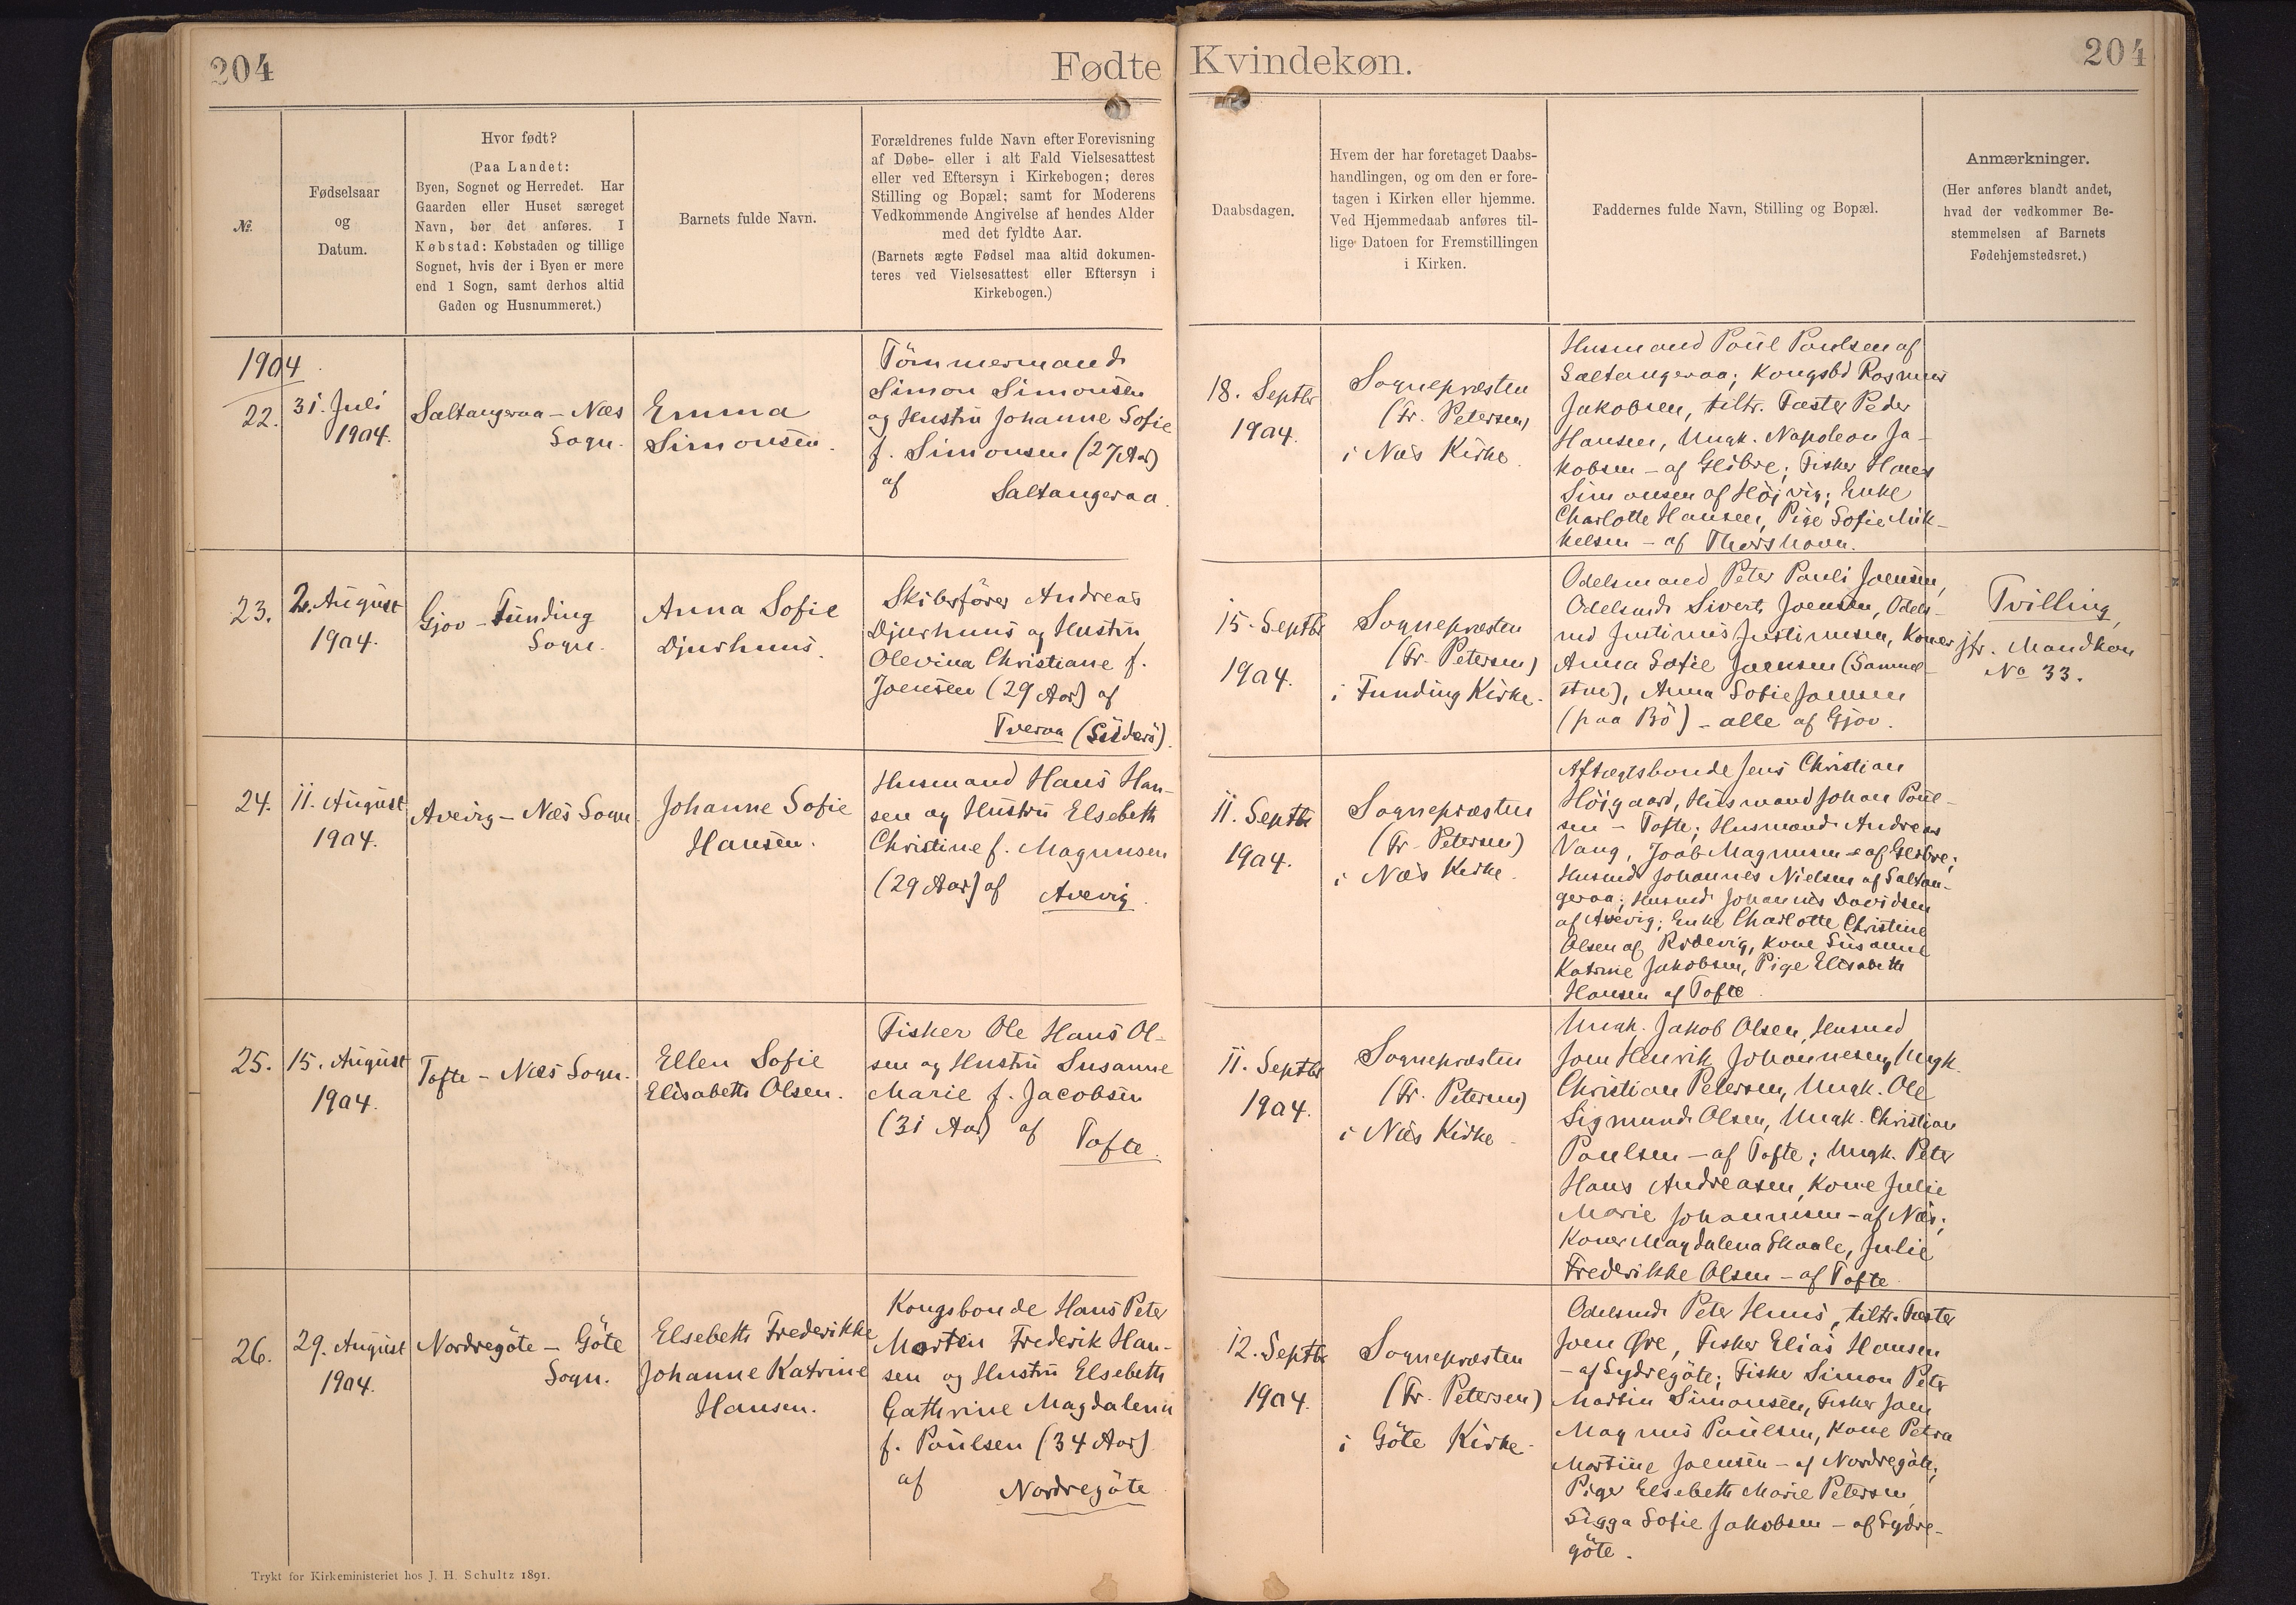 204
Fødte
Kvindekøn.
204
№
Fødselsaar
og
Datum.
Hvor født?
(Paa Landet:
Byen, Sognet og Herredet. Har
Gaarden eller Huset særeget
Navn, bør det anføres. I
Købstad: Købstaden og tillige
Sognet, hvis der i Byen er mere
end 1 Sogn, samt derhos altid
Gaden og Husnummeret.)
Barnets fulde Navn.
Forældrenes fulde Navn efter Forevisning
af Døbe- eller i alt Fald Vielsesattest
eller ved Eftersyn i Kirkebogen; deres
Stilling og Bopæl; samt for Moderens
Vedkommende Angivelse af hendes Alder
med det fyldte Aar.
(Barnets ægte Fødsel maa altid dokumen-
teres ved Vielsesattest eller Eftersyn i
Kirkebogen.)
Daabsdagen.
Hvem der har foretaget Daabs-
handlingen, og om den er fore-
tagen i Kirken eller hjemme.
Ved Hjemmedaab anføres til-
lige Datoen for Fremstillingen
i Kirken.
Faddernes fulde Navn, Stilling og Bopæl.
Anmærkninger.
(Her anføres blandt andet,
hvad der vedkommer Be-
stemmelsen af Barnets
Fødehjemstedsret.)
1904
22.
31. Juli
1904.
Saltangeraa – Næs
Sogn.
Emma
Simonsen.
Tömmermand
Simon Simonsen
og Hustru Johanne Sofie
f. Simonsen (27 Aar)
af
Saltangeraa.
18. Septbr
1904.
Sognepræsten
(Fr. Petersen)
i Næs Kirke.
Husmand Poul Poulsen af
Saltangeraa; Kongsbd Rasmus
Jakobsen, tiltr. Fæster Peder
Hansen, Ungk. Napoleon Ja-
kobsen – af Glibre; Fisker Hans
Simonsen af Höjvig; Enke
Charlotte Hansen, Pige Sofie Mik-
kelsen – af Thorshavn.
23.
2. August
1904.
Gjov – Funding
Sogn.
Anna Sofie
Djurhuus.
Skibsförer Andreas
Djurhuus og Hustru
Olevina Christiane f.
Joensen (29 Aar) af
Tveraa (Süderö).
15. Septbr
1904.
Sognepræsten
(Fr. Petersen)
i Funding Kirke.
Odelsmand Peter Pauli Joensen,
Odelsmd Sivert Joensen, Odels-
md Justinus Justinusen, Koner
Anna Sofie Joensen (Samuel-
stue), Anna Sofie Joensen
(paa Bö) – alle af Gjov.
Tvilling,
jfr. Mandkøn
No 33.
24.
11. August
1904.
Avevig – Næs Sogn.
Johanne Sofie
Hansen.
Husmand Hans Han-
sen og Hustru Elsebeth
Christine f. Magnusen
(29 Aar) af Avevig.
11. Septbr
1904.
Sognepræsten
(Fr. Petersen)
i Næs Kirke.
Aftægtsbonde Jens Christian
Höjgaard, Husmand Johan Poul-
sen – Tofte; Husmand Andreas
Vang, Joab Magnusen – af Glibre;
Husmd Johannes Nielsen af Saltan-
geraa; Husmd Johannes Davidsen
af Avevig; Enke Charlotte Christine
Olsen af Ridevig, Kone Susanne
Katrine Jakobsen, Pige Elisabeth
Hansen af Tofte.
25.
15. August
1904.
Tofte – Næs Sogn.
Ellen Sofie
Elisabeth Olsen.
Fisker Ole Hans Ol-
sen og Hustru Susanne
Marie f. Jacobsen
(31 Aar) af Tofte.
11. Septbr
1904.
Sognepræsten
(Fr. Petersen)
i Næs Kirke.
Ungk. Jakob Olsen, Husmd
Joen Henrik Johannesen, Ungk.
Christian Petersen, Ungk. Ole
Sigmund Olsen, Ungk. Christian
Poulsen – af Tofte; Ungk. Peter
Hans Andreasen, Kone Julie
Marie Johannesen – af Næs;
Koner Magdalena Skaale, Julie
Frederikke Olsen – af Tofte.
26.
29. August
1904.
Nordregöte – Göte
Sogn.
Elsebeth Frederikke
Johanne Katrine
Hansen.
Kongsbonde Hans Peter
Morten Frederik Han-
sen og Hustru Elsebeth
Cathrine Magdalena
f. Poulsen (34 Aar)
af
Nordregöte
12. Septbr
1904.
Sognepræsten
(Fr. Petersen)
i Göte Kirke.
Odelsmd Peter Huus, tiltr. Fæster
Joen Øre, Fisker Elias Hansen
– af Sydregöte; Fisker Simon Peter
Martin Simonsen, Fisker Joen
Magnus Poulsen, Kone Petra
Martine Joensen – af Nordregöte;
Piger Elsebeth Marie Petersen,
Sigga Sofie Jakobsen – af Sydre-
göte.
Trykt for Kirkeministeriet hos J. H. Schultz 1891.